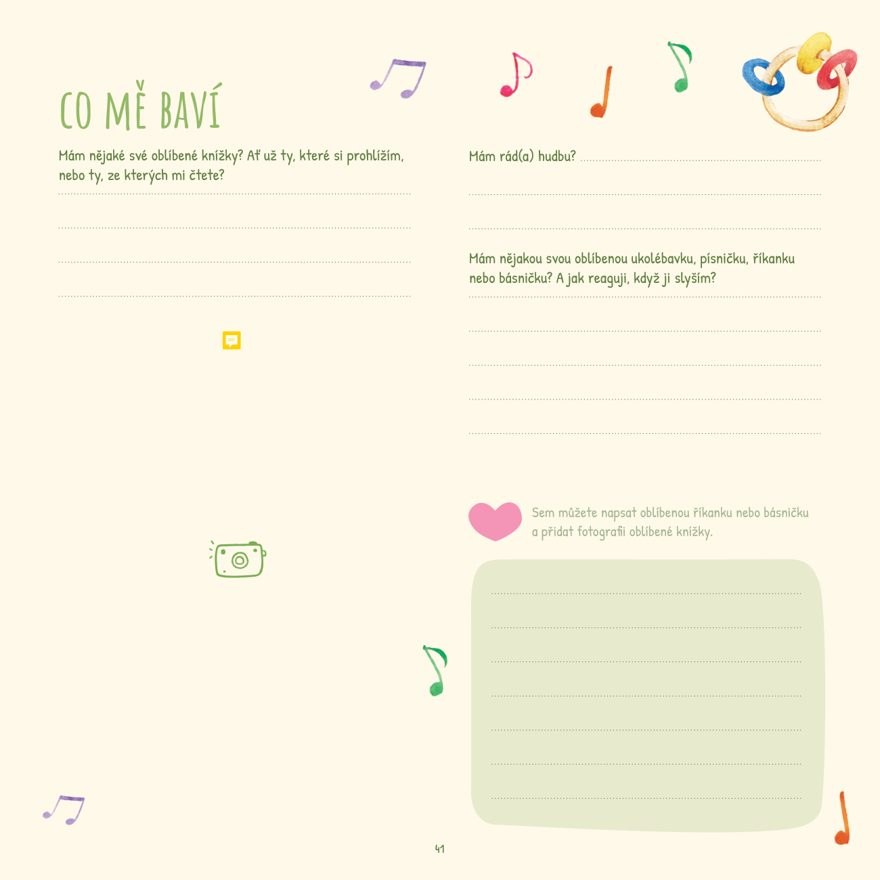 CO MĚ BAVÍ
Mám nějaké své oblíbené knížky? Ať už ty, které si prohlížím,
nebo ty, ze kterých mi čtete?
Mám rád(a) hudbu?
Mám nějakou svou oblíbenou ukolébavku, písničku, říkanku
nebo básničku? A jak reaguji, když ji slyším?
Sem můžete napsat oblíbenou říkanku nebo básničku
a přidat fotografii oblíbené knížky.
41